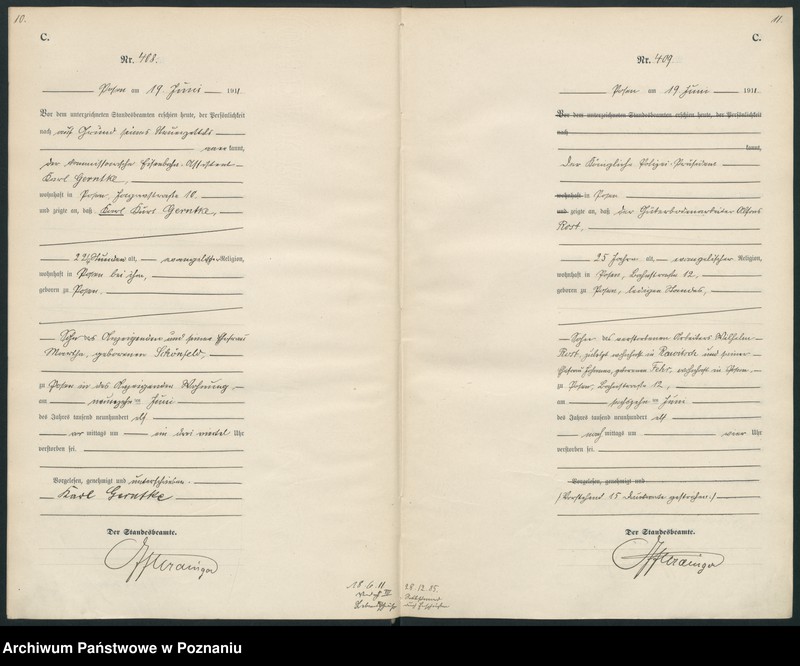 10.
C.
Nr. 408.
Posen am 19 Juni 1911.
Vor dem unterzeichneten Standesbeamten erschien heute, der Persönlichkeit
nach auf Grund seines Steuerzettels
kannt,
der kommissarische Eisenbahn-Assistent
Karl Gerntke,
wohnhaft in Posen,
und zeigte an, daß Karl Kurt Gerntke,
Stunden alt, evangelischer Religion,
wohnhaft in Posen bei ihm,
geboren zu Posen,
Sohn des Anzeigenden und seiner Ehefrau
Martha, geborenen Schönfeld,
zu Posen in des Anzeigenden Wohnung,
am neunzehn ten Juni
des Jahres tausend neunhundert elf
vor mittags um ein drei viertel Uhr
verstorben sei.
Vorgelesen, genehmigt und unterschrieben.
Karl Gerntke
Der Standesbeamte.
18.6.11
11.
C.
Nr. 409
Posen am 19 Juni 1911.
Vor dem unterzeichneten Standesbeamten erschien heute, der Persönlichkeit
nach
kannt,
Der Königliche Polizei-Präsident
wohnhaft in Posen
und zeigte an, daß der Güterbodenarbeiter Alfons
Rost,
25 Jahre alt, evangelischer Religion,
wohnhaft in Posen, 12,
geboren zu Posen, ledigen Standes,
Sohn des verstorbenen Arbeiters Wilhelm
Rost, zuletzt wohnhaft in Rawitsch und seiner
Ehefrau Johanna, geborenen wohnhaft in Posen
zu Posen, 12,
am sechszehn ten Juni
des Jahres tausend neunhundert elf
nach mittags um vier Uhr
verstorben sei.
Vorgelesen, genehmigt und
/Vorstehend 15 Druckworte gestrichen./
Der Standesbeamte.
28.12.85.
Archiwum Państwowe w Poznaniu